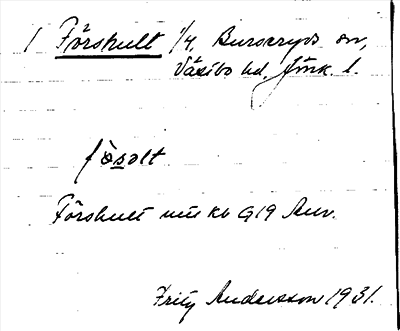 1 Förshult 1/4, Burseryds sn,
Västbo hd, Jönk. l.
fòsolt
Förshult nu Kb G19 Anv.
Fritz Andersson 1931.